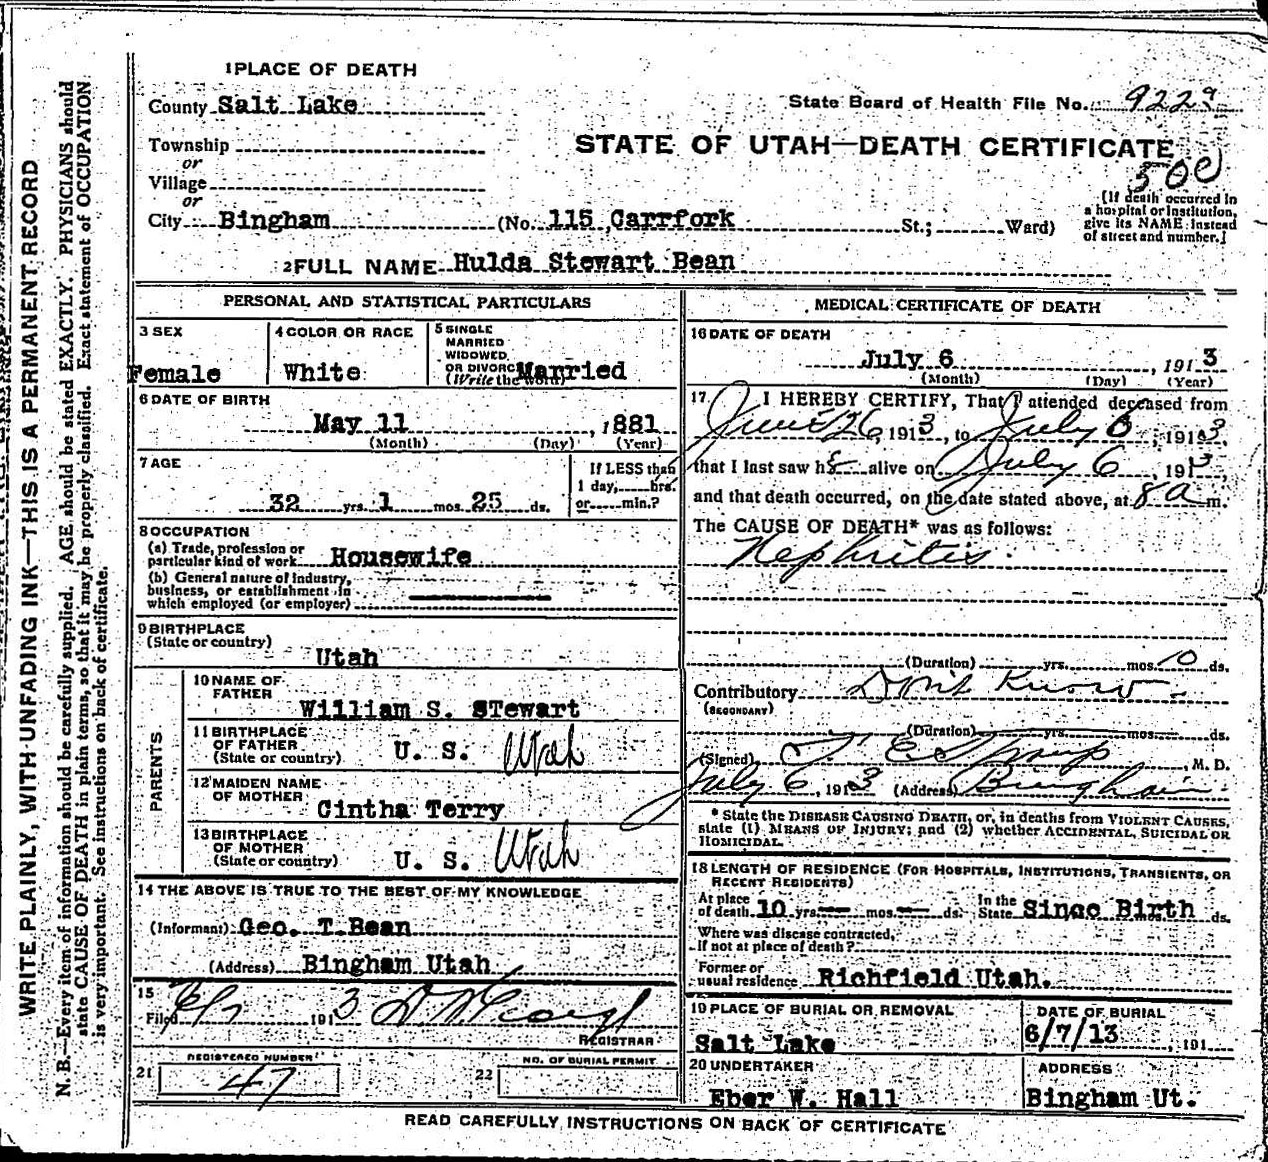 1 PLACE OF DEATH
County Salt Lake
State Board of Health File No. 9229
Township
STATE OF UTAH—DEATH CERTIFICATE
or
Village
or
City Bingham (No. 115 Carrfork St.; Ward)
(If death occurred in
a hospital or institution,
give its NAME instead
of street and number.)
2 FULL NAME Hulda Stewart Bean
PERSONAL AND STATISTICAL PARTICULARS
3 SEX
Female
4 COLOR OR RACE
White
5 SINGLE
MARRIED
WIDOWED
OR DIVORCED
(Write the word)
Married
6 DATE OF BIRTH
May 11, 1881
(Month) (Day) (Year)
7 AGE
32 yrs. 1 mos. 25 ds.
If LESS than
1 day, hrs.
or min.?
8 OCCUPATION
(a) Trade, profession or
particular kind of work Housewife
(b) General nature of industry,
business, or establishment in
which employed (or employer)
9 BIRTHPLACE
(State or country)
Utah
PARENTS
10 NAME OF
FATHER
William S. STewart
11 BIRTHPLACE
OF FATHER
(State or country) U. S. Utah
12 MAIDEN NAME
OF MOTHER
Cintha Terry
13 BIRTHPLACE
OF MOTHER
(State or country) U. S. Utah
14 THE ABOVE IS TRUE TO THE BEST OF MY KNOWLEDGE
(Informant) Geo. T. Bean
(Address) Bingham Utah
15
Filed 191 3
REGISTRAR
REGISTERED NUMBER
21 47
NO. OF BURIAL PERMIT
22
MEDICAL CERTIFICATE OF DEATH
16 DATE OF DEATH
July 6, 1913
(Month) (Day) (Year)
17 I HEREBY CERTIFY, That I attended deceased from
June 26, 1913, to July 6, 1913
that I last saw h alive on July 6, 1913
and that death occurred, on the date stated above, at 8 a m.
The CAUSE OF DEATH* was as follows:
Nephritis
(Duration) yrs. mos. 10 ds.
Contributory Don't Know
(SECONDARY)
(Duration) yrs. mos. ds.
(Signed) M. D.
July 6, 1913 (Address) Bingham
* State the DISEASE CAUSING DEATH, or, in deaths from VIOLENT CAUSES,
state (1) MEANS OF INJURY; and (2) whether ACCIDENTAL, SUICIDAL OR
HOMICIDAL.
18 LENGTH OF RESIDENCE (FOR HOSPITALS, INSTITUTIONS, TRANSIENTS, OR
RECENT RESIDENTS)
At place
of death 10 yrs. — mos. — ds.
In the
State Since Birth ds.
Where was disease contracted,
if not at place of death?
Former or
usual residence Richfield Utah.
19 PLACE OF BURIAL OR REMOVAL
Salt Lake
DATE OF BURIAL
6/7/13, 191
20 UNDERTAKER
Eber W. Hall
ADDRESS
Bingham Ut.
READ CAREFULLY INSTRUCTIONS ON BACK OF CERTIFICATE
WRITE PLAINLY, WITH UNFADING INK—THIS IS A PERMANENT RECORD
N. B.—Every item of information should be carefully supplied. AGE should be stated EXACTLY. PHYSICIANS should
state CAUSE OF DEATH in plain terms, so that it may be properly classified. Exact statement of OCCUPATION
is very important. See instructions on back of certificate.